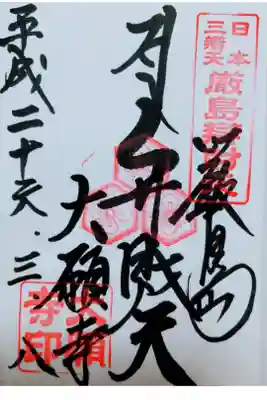 日本
三辨天
厳島辨財天
嚴島
弁財天
大願寺
大願寺印
平成二十六.三.八